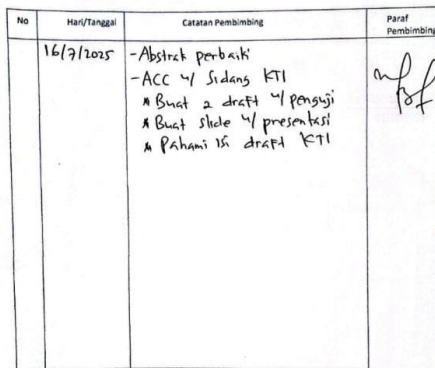 No Hari/Tanggal Catatan Pembimbing Paraf Pembimbing
16/7/2025 - Abstrak perbaiki
- ACC u/ Sidang KTI
* Buat 2 draft u/ penguji
* Buat slide u/ presentasi
* Pahami isi draft KTI